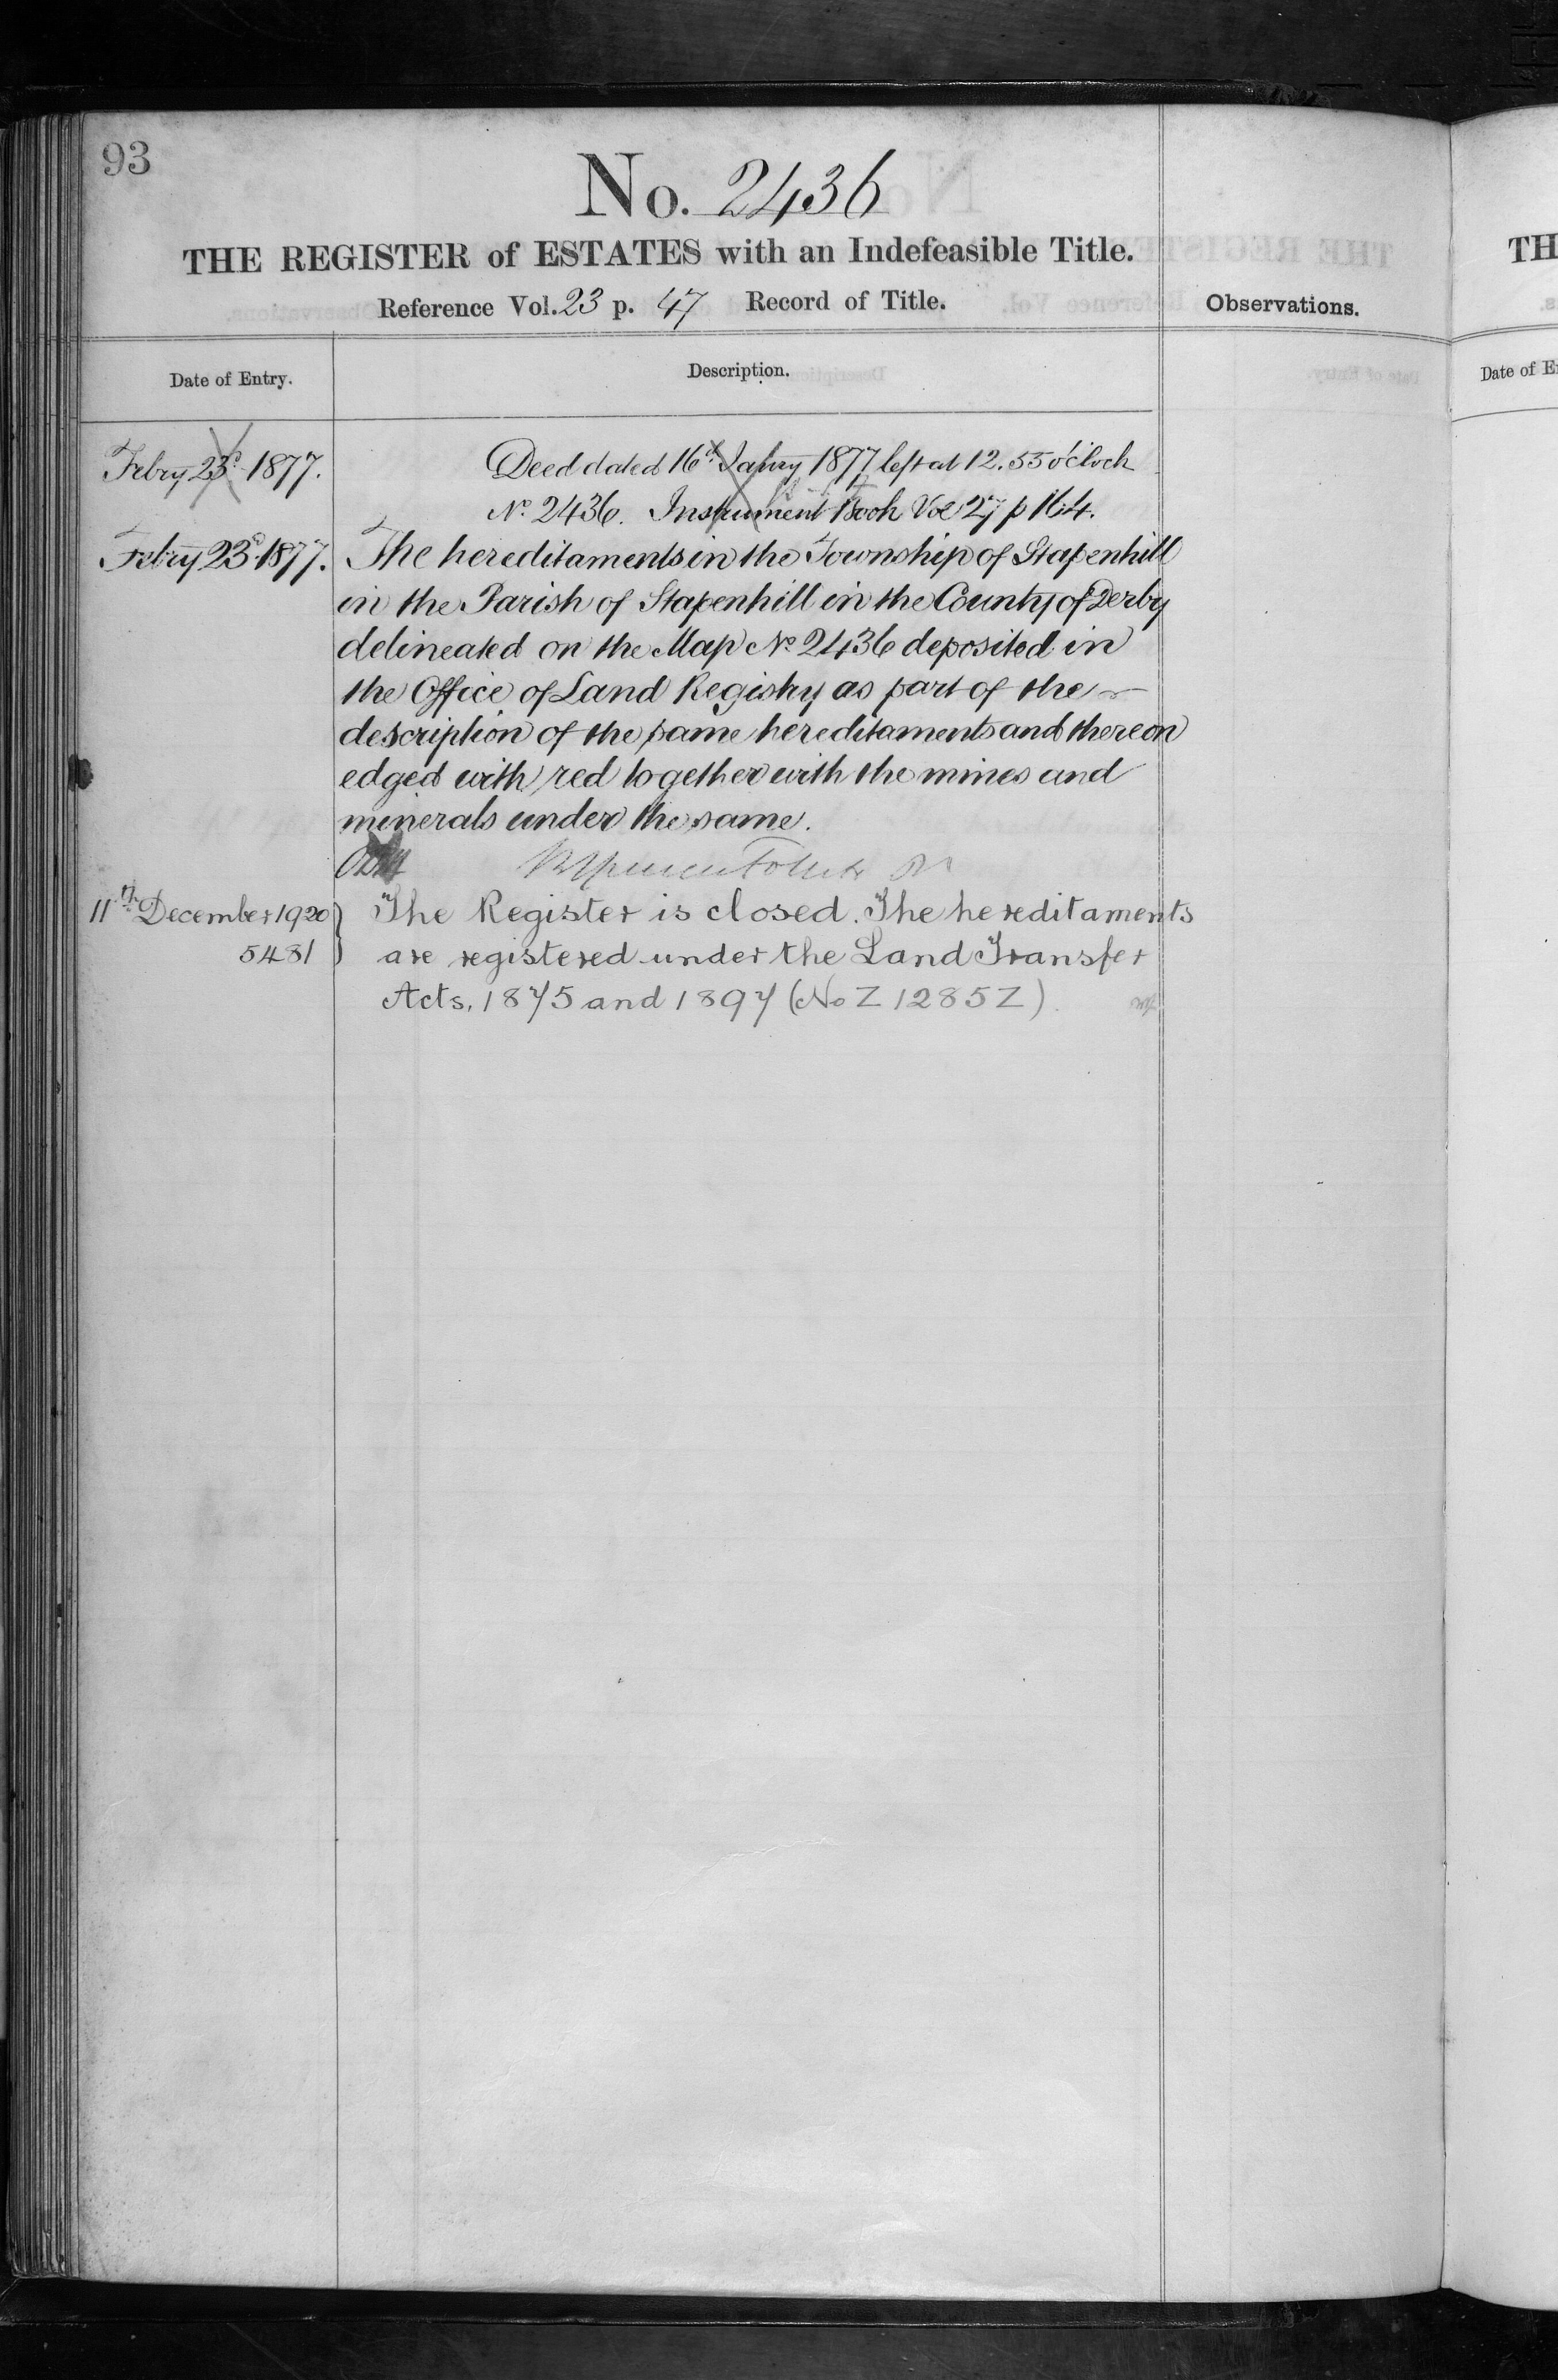 93
No. 2436
THE REGISTER of ESTATES with an Indefeasible Title.
Reference Vol. 23 p. 47 Record of Title.
Observations.
Date of Entry.
Description.
Febry 23d 1877.
Deed dated 16th Jany 1877 left at 12.53 o'clock
No. 2436. Instrument Book Vol 27 p
Febry 23d 1877.
The hereditaments in the Township of Stapenhill
in the Parish of Stapenhill in the County of Derby
delineated on the Map No. 2436 deposited in
the Office of Land Registry as part of the
description of the same hereditaments and thereon
edged with red together with the mines and
minerals under the same.
11th December 1920
5481
The Register is closed. The hereditaments
are registered under the Land Transfer
Acts, 1875 and 1897 (No Z 1285Z).
TH
Date of E